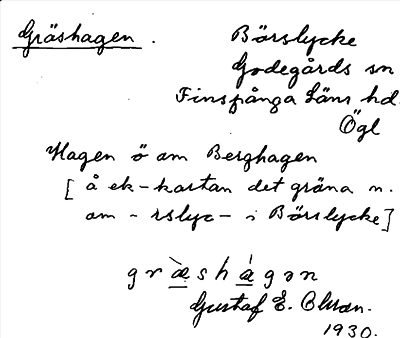 Gräshagen.
Börslycke
Godegårds sn
Finspånga läns hd.
Ögl
Hagen ö om Berghagen
[å ek-kartan det gröna n.
om -rslyc- i Börslycke]
græ̀shágən
Gustaf E. Olsson.
1930.